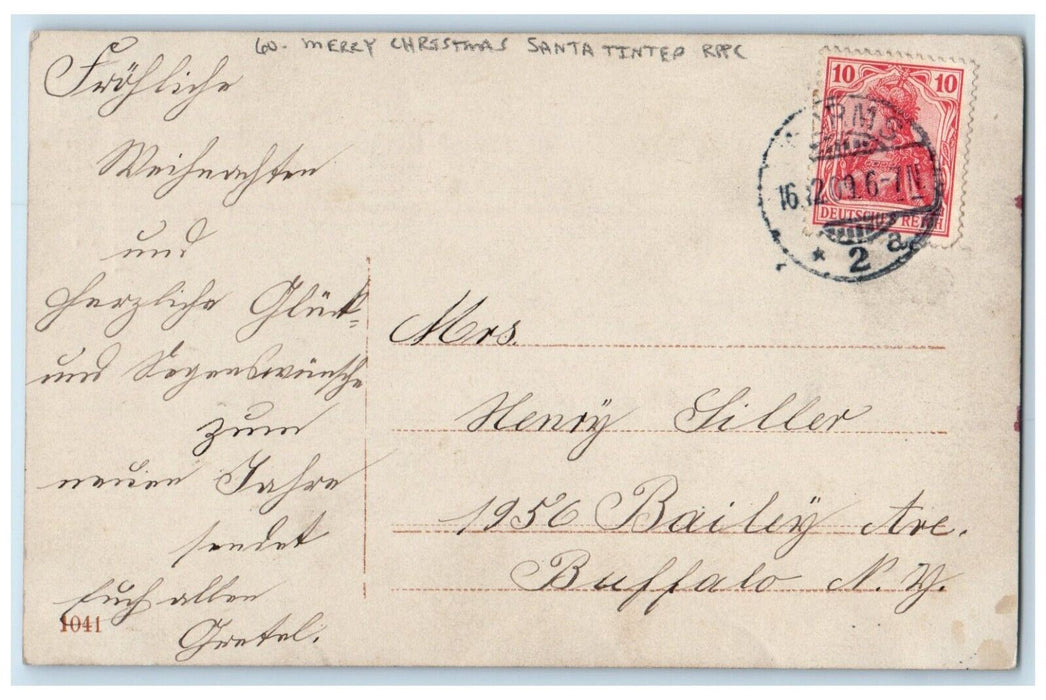 60- MERRY CHRISTMAS SANTA TINTED RPPC
Fröhliche
Weihnachten
und
herzliche Glück-
und Segenswünsche
zum
neuen Jahre
sendet
Euch allen
Gretel.
1041
10 10
DEUTSCHES REICH
WORMS
16.12.09.6-7N
* 2 a
Mrs.
Henry Siller
1956 Bailey Ave.
Buffalo N.Y.